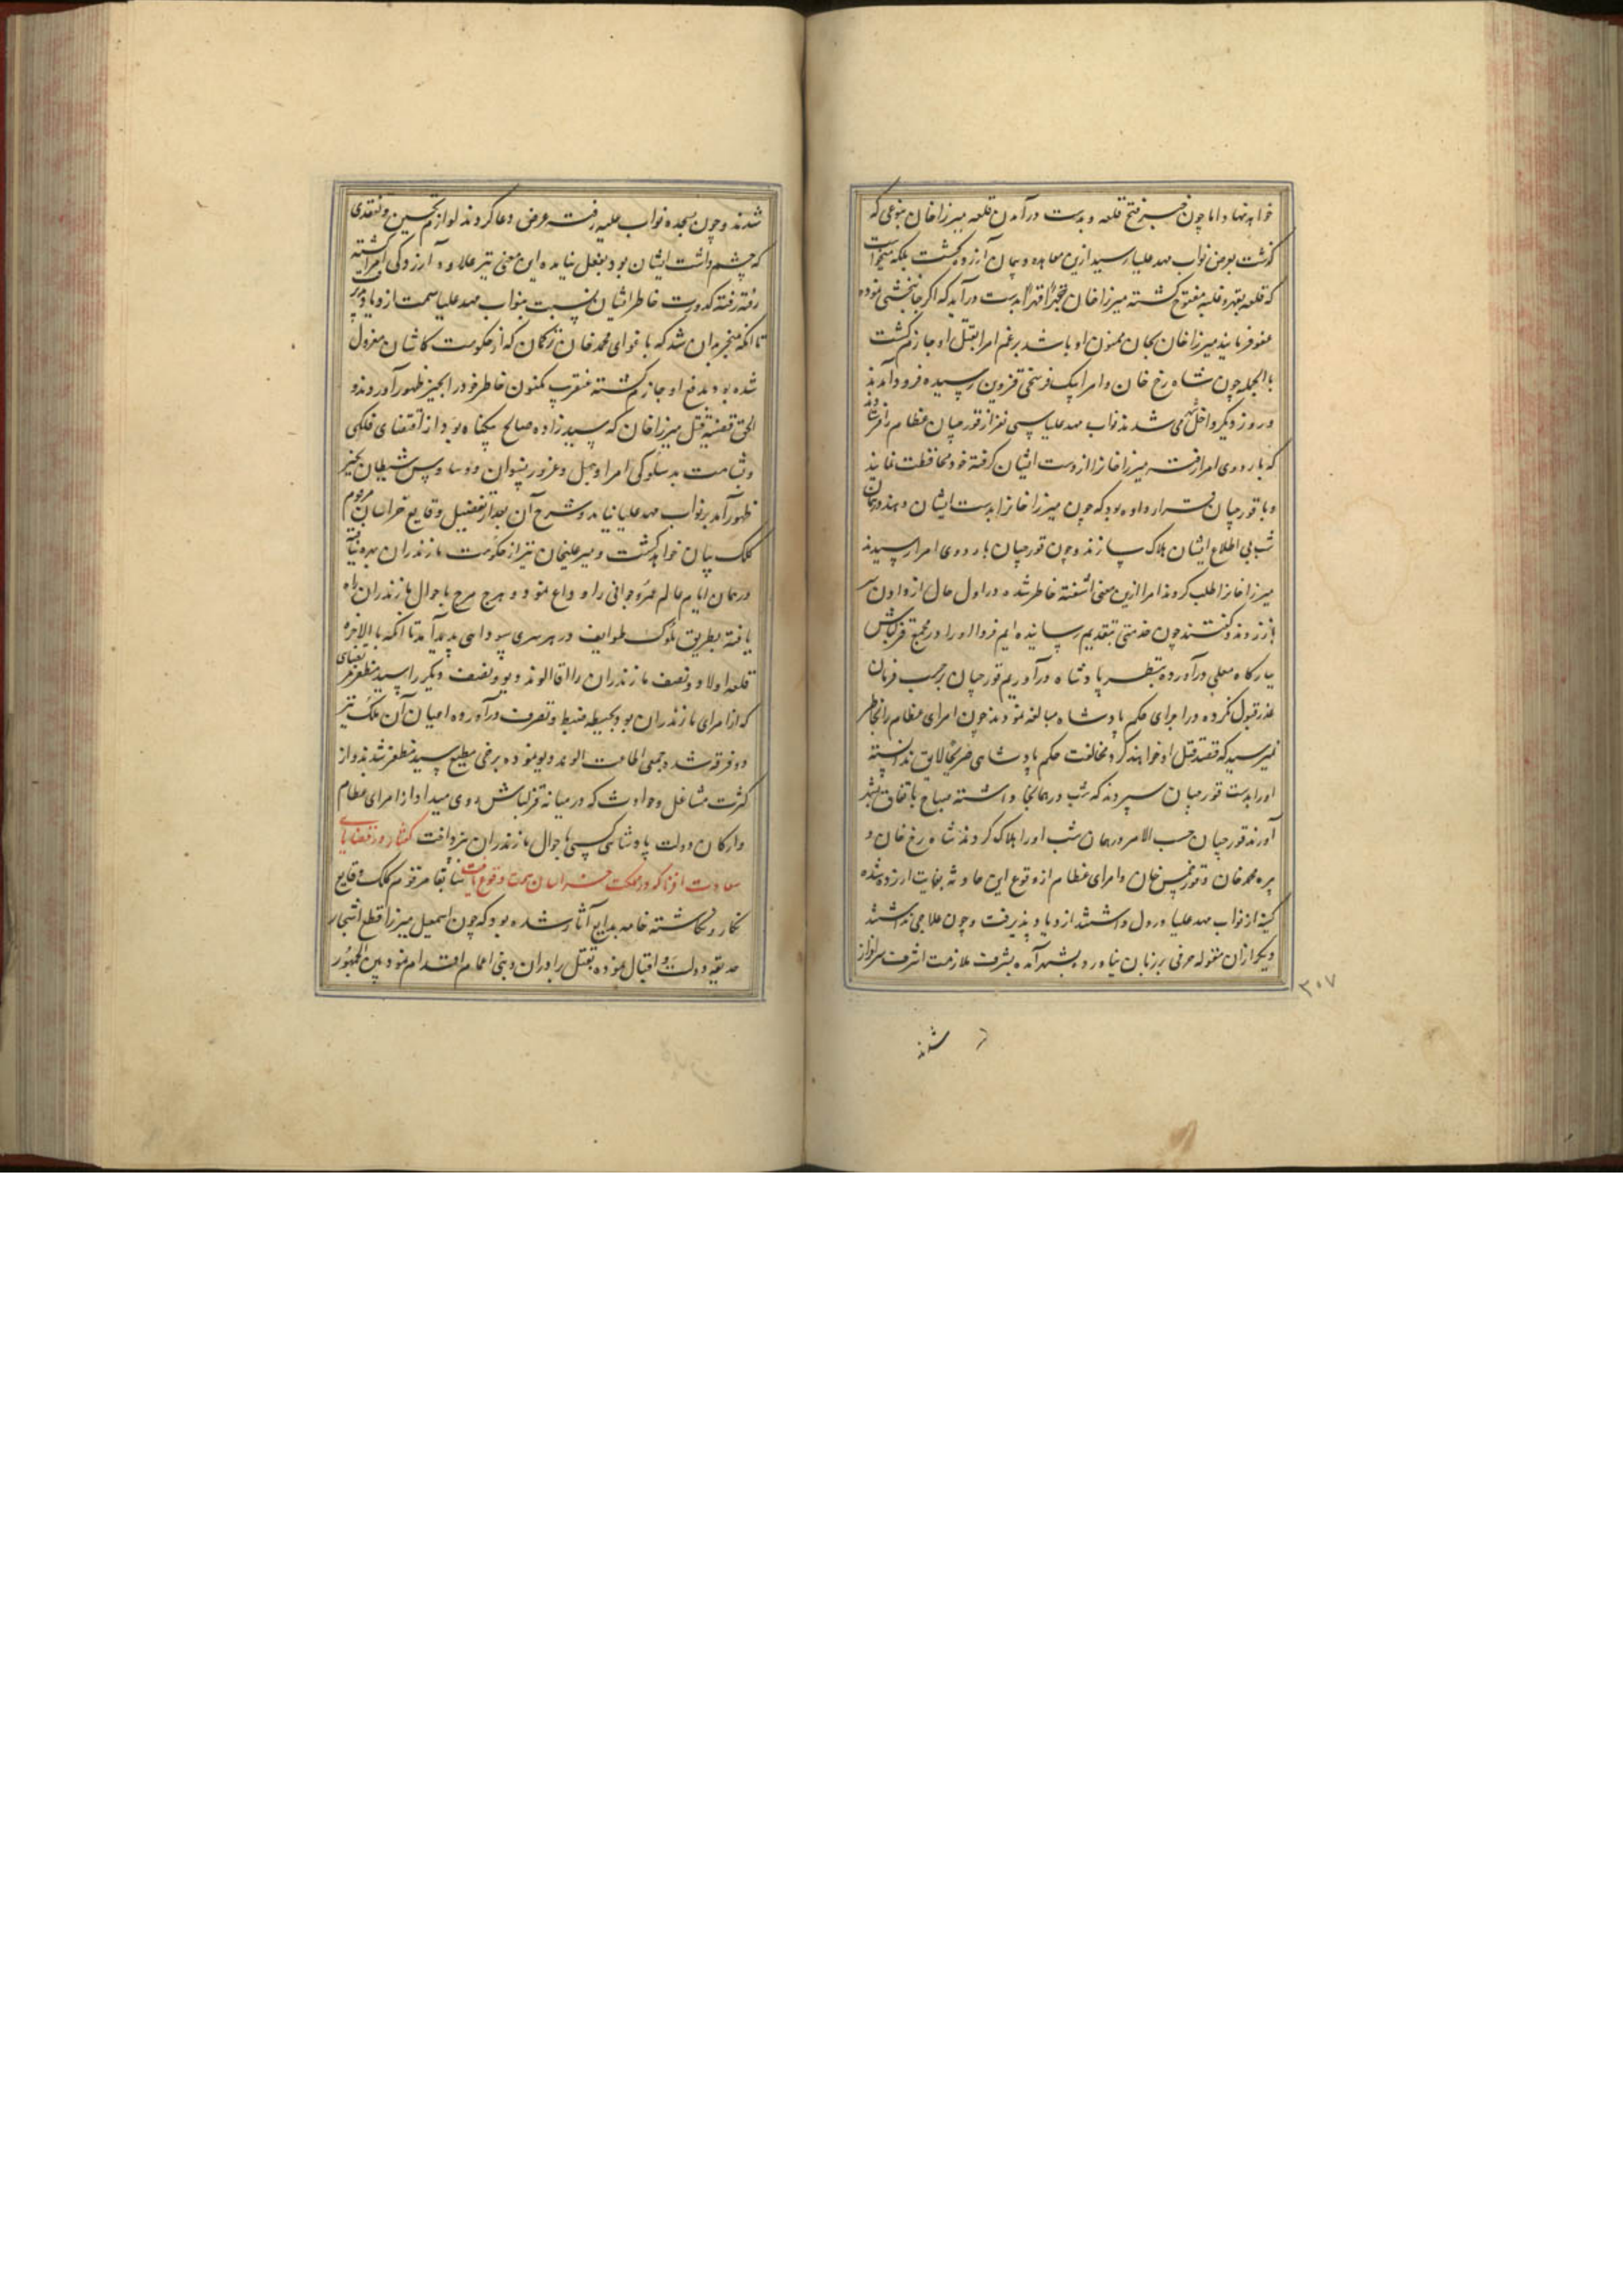 خواهد نهاد اما چون خبر فتح قلعه و بدست درآمدن قلعه میرزا خان بنوعی که
گذشت بعرض نواب مهد علیا رسید ازین معاهده و پیمان آزرده گشت بلکه میخواست
که قلعه بقهر و غلبه مفتوح گشته میرزا خان جبرا قهرا بدست درآید که اگر جانبخشی نموده
عفو فرمایند میرزا خان بجان ممنون او باشد برغم امرا بقتل او جازم گشت
بالجمله چون شاه رخ خان و امرا بیک فرسخی قزوین رسیده فرود آمدند
و روز دیگر داخل می شدند نواب مهد علیا سی نفر از قورچیان عظام را فرستادند
که باردوی امرا رفته میرزا خانرا از دست ایشان گرفته خود محافظت نمایند
و با قورچیان قرار داده بود که چون میرزا خانرا بدست ایشان دهند در همان
شب بی اطلاع ایشان هلاک سازند و چون قورچیان باردوی امرا رسیدند
میرزا خانرا طلب کردند امرا ازین معنی آشفته خاطر شده در اول حال از دادن سر
باز زدند و گفتند چون خدمتی بتقدیم رسانیده ایم فردا او را در مجمع قزلباش
ببارگاه معلی درآورده بنظر پادشاه درآوریم قورچیان برحسب فرمان
عذر قبول نکرده در اجرای حکم پادشاه مبالغه نمودند چون امرای عظام را بخاطر
نمیرسید که قصد قتل او خواهند کرد مخالفت حکم پادشاهی صریحا لایق ندانسته
او را بدست قورچیان سپردند که شب در همانجا داشته صباح باتفاق بشهر
آورند قورچیان حسب الامر در همان شب او را هلاک کردند شاه رخ خان و
پیره محمد خان و قورخمس خان و امرای عظام از وقوع این حادثه بغایت آزرده شده
کینه از نواب مهد علیا در دل داشتند ازدیاد پذیرفت و چون علاجی نداشتند
دیگر ازان مقوله حرفی بر زبان نیاورده بشهر آمده بشرف ملازمت اشرف سرافراز
۳۰۷
شدند
شدند و چون بسجده نواب علیه رفته عرض دعا کردند لوازم تحسین و تفقدی
که چشم داشت ایشان بود بفعل نیامده این معنی نیز علاوه آزردگی امرا گشته
رفته رفته کدورت خاطر ایشان نسبت بنواب مهد علیا سمت ازدیاد می پذیرفت
تا آنکه منجر بدان شد که باغوای محمد خان ترکمان که از حکومت کاشان معزول
شده بود بدفع او جازم گشته عنقریب مکنون خاطر خود را بحیز ظهور آوردند و
الحق قضیه قتل میرزا خان که سید زاده صالح بیگناه بود از اقتضای فلکی
و شامت بدسلوکی امرا و جهل و غرور نسوان و وساوس شیطان بحیز
ظهور آمد بر نواب مهد علیا نیامد و شرح آن بعد از تفصیل وقایع خراسان مرقوم
کلک بیان خواهد گشت و میر علیخان نیز از حکومت مازندران بهره نیافته
در همان ایام عالم عمر و جوانی را وداع نمود و هرج مرج باحوال مازندران راه
یافته بطریق ملوک طوایف در هر سری سودایی پدید آمد تا آنکه بالاخره
قلعه اولاد و نصف مازندران را آقا الوند دیو و نصف دیگر را سید مظفر مرتضای
که از امرای مازندران بود بحیطه ضبط و تصرف درآورده اعیان آن ملک نیز
دو فرقه شد و جمعی اطاعت الوند دیو نموده برخی مطیع سید مظفر شدند و از
کثرت مشاغل و حوادث که در میانه قزلباش روی میداد از امرای عظام
و ارکان دولت پادشاهی کسی باحوال مازندران نپرداخت گفتار در قضایای
سعادت افزا که در مملکت خراسان سمت وقوع یافت سابقا مرقوم کلک وقایع
نگار و نگاشته خامه بدایع آثار شده بود که چون اسمعیل میرزا قطع اشجار
حدیقه دولت و اقبال نموده بقتل برادران و بنی اعمام اقدام نمود بین الجمهور